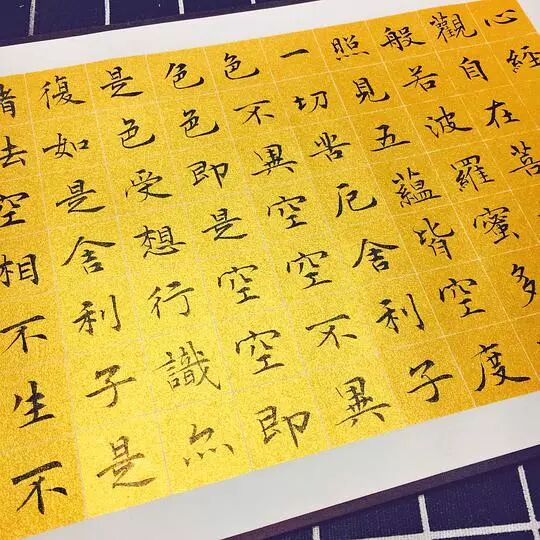 心經
觀自在菩
般若波羅蜜多
照見五蘊皆空度
一切苦厄舍利子
色不異空空不異
色色即是空空即
是色受想行識亦
復如是舍利子是
諸法空相不生不